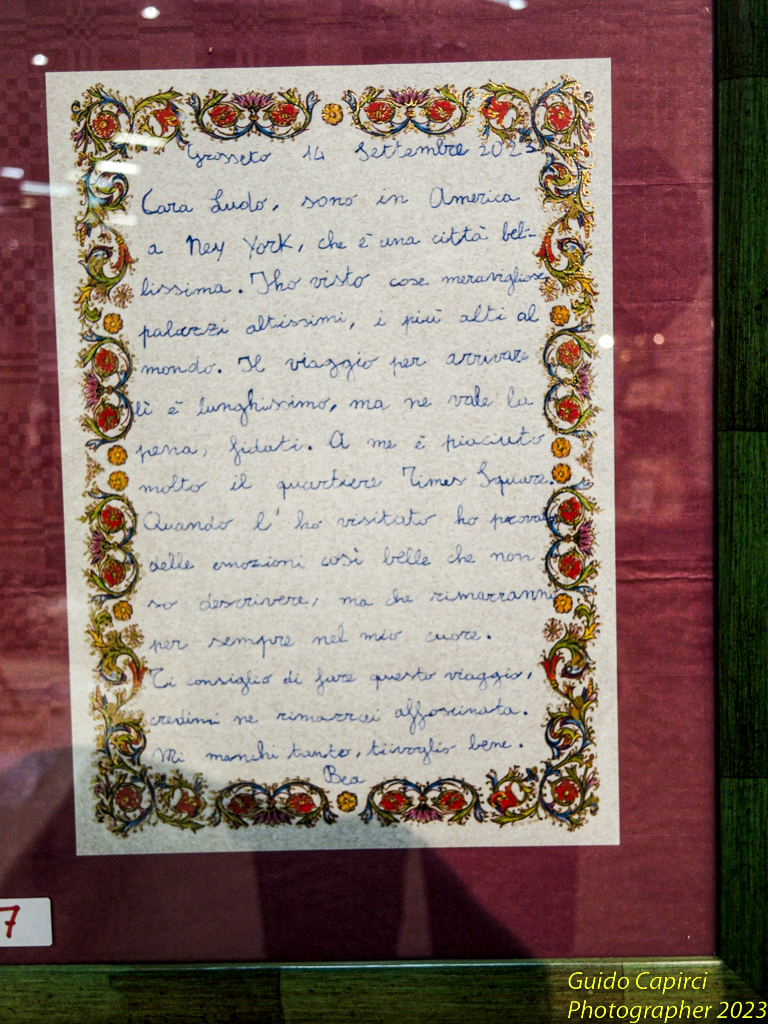 Grosseto 14 Settembre 2023
Cara Ludo, sono in America
a Ney York, che è una città bel-
lissima. Iho visto cose meravigliose
palazzi altissimi, i piú alti al
mondo. Il viaggio per arrivare
lì è lunghissimo, ma ne vale la
pena, fidati. A me è piaciuto
molto il quartiere Times Square.
Quando l'ho visitato ho provato
delle emozioni così belle che non
so descrivere, ma che rimarranno
per sempre nel mio cuore.
Ti consiglio di fare questo viaggio,
credimi ne rimarrai affascinata.
Mi manchi tanto, tivoglio bene.
Bea
7
Guido Capirci
Photographer 2023